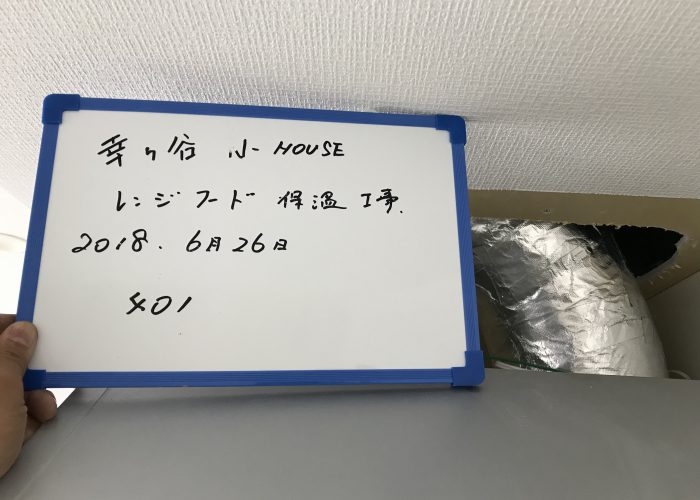 幸ヶ谷 小-HOUSE
レンジフード 保温工事.
2018. 6月26日
401